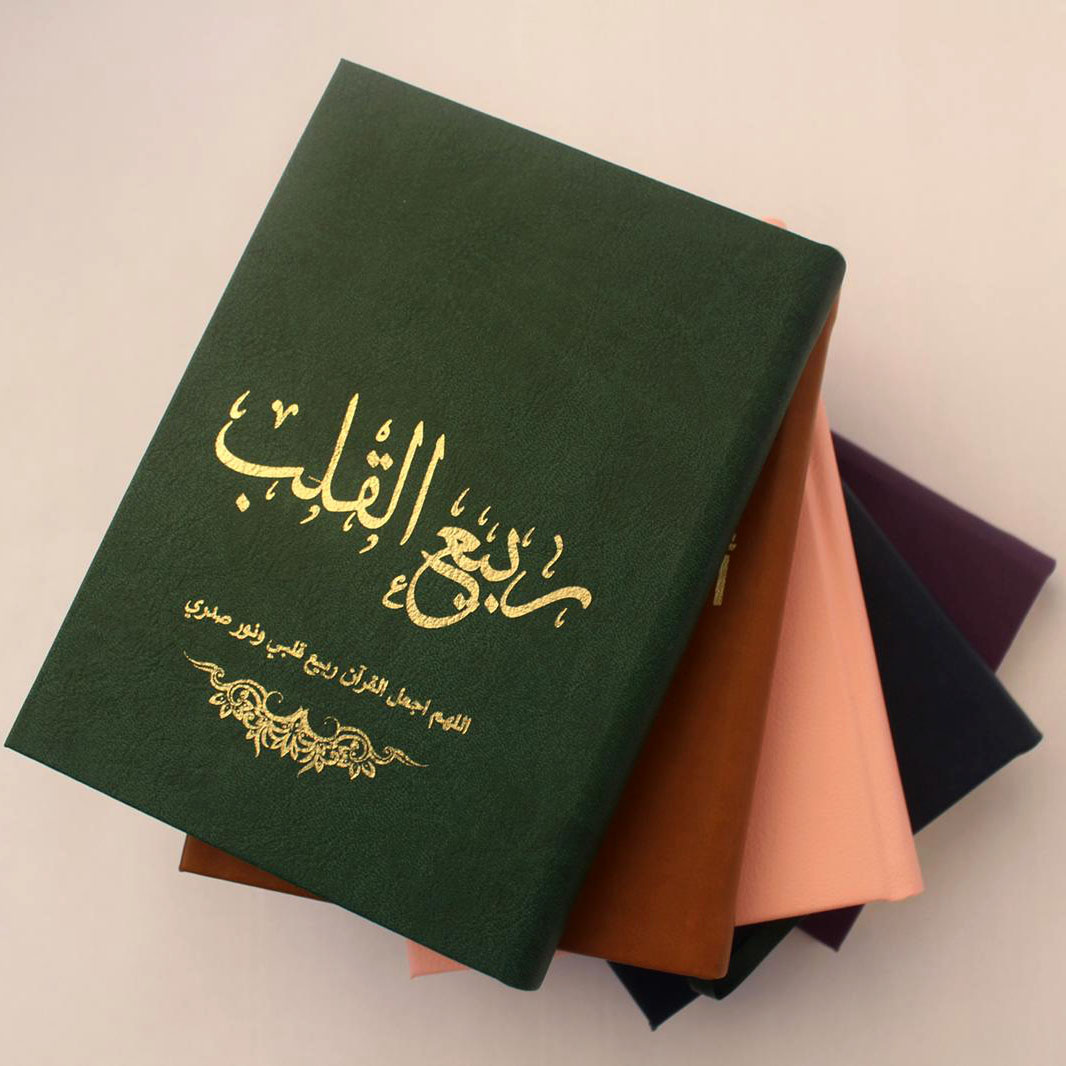 ربيع القلب
اللهم اجعل القرآن ربيع قلبي ونور صدري